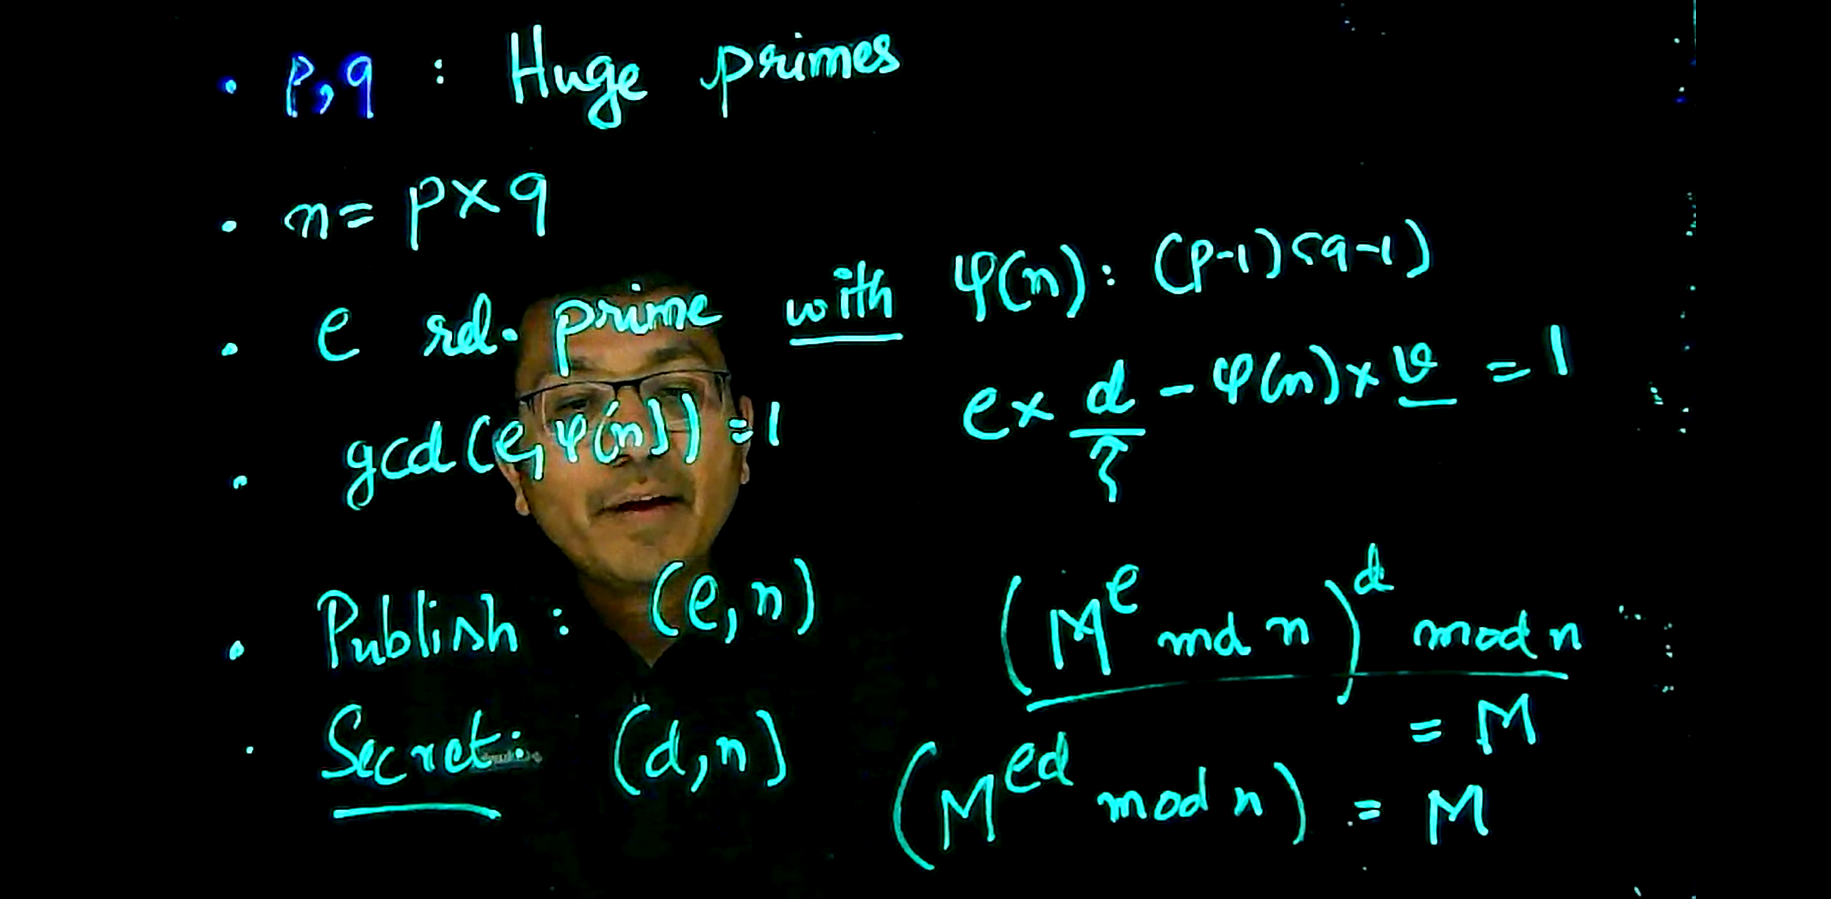 • p,q : Huge primes
• n = p × q
• e rel. prime with φ(n) : (p-1)(q-1)
• gcd(e, φ(n)) = 1
e × d - φ(n) × v = 1
?
• Publish : (e, n)
• Secret : (d, n)
(M^e md n)^d mod n
= M
(M^ed mod n) = M